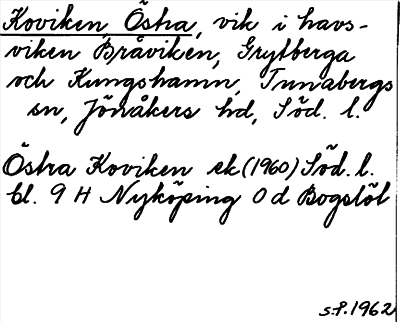 Koviken, Östra, vik i havs-
viken Bråviken, Grytberga
och Kungshamn, Tunabergs
sn, Jönåkers hd, Söd. l.
Östra Koviken ek (1960) Söd. l.
bl. 9 H Nyköping O d Bogslöt
s.P. 1962